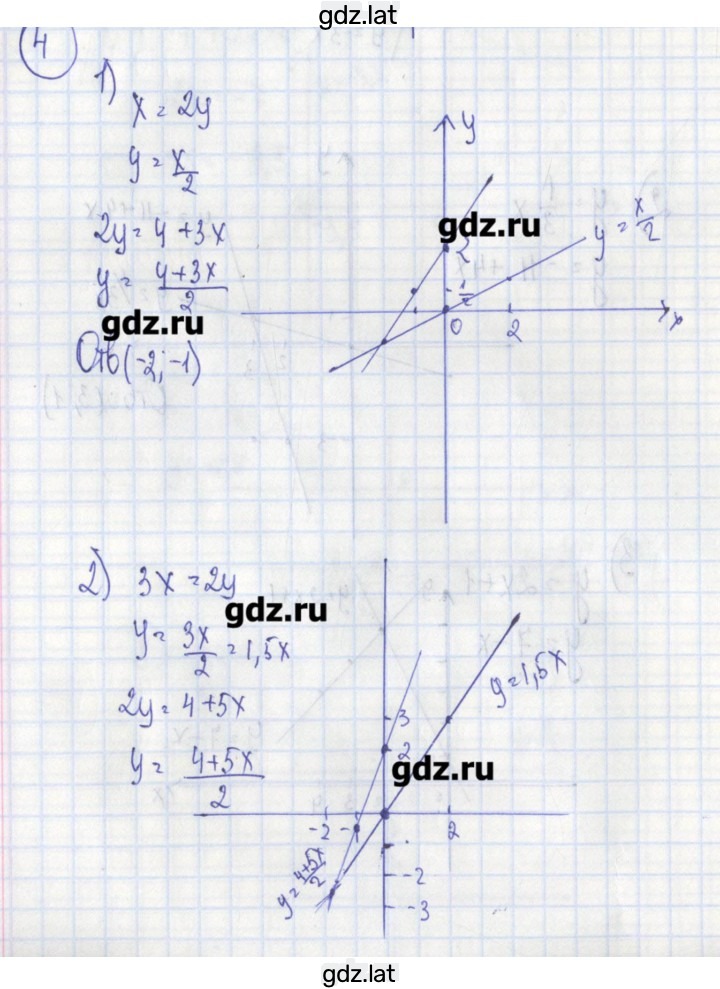 gdz.lat
4
1)
x = 2y
y = x/2
2y = 4 + 3x
y = 4+3x/2
gdz.ru
Отв (-2; -1)
y
gdz.ru
2
y = x/2
1/2
0
2
x
2)
3x = 2y
gdz.ru
y = 3x/2 = 1,5x
2y = 4 + 5x
y = 4+5x/2
y = 1,5x
3
2
gdz.ru
-2
-1
2
y = 4+5x/2
-2
-3
gdz.lat